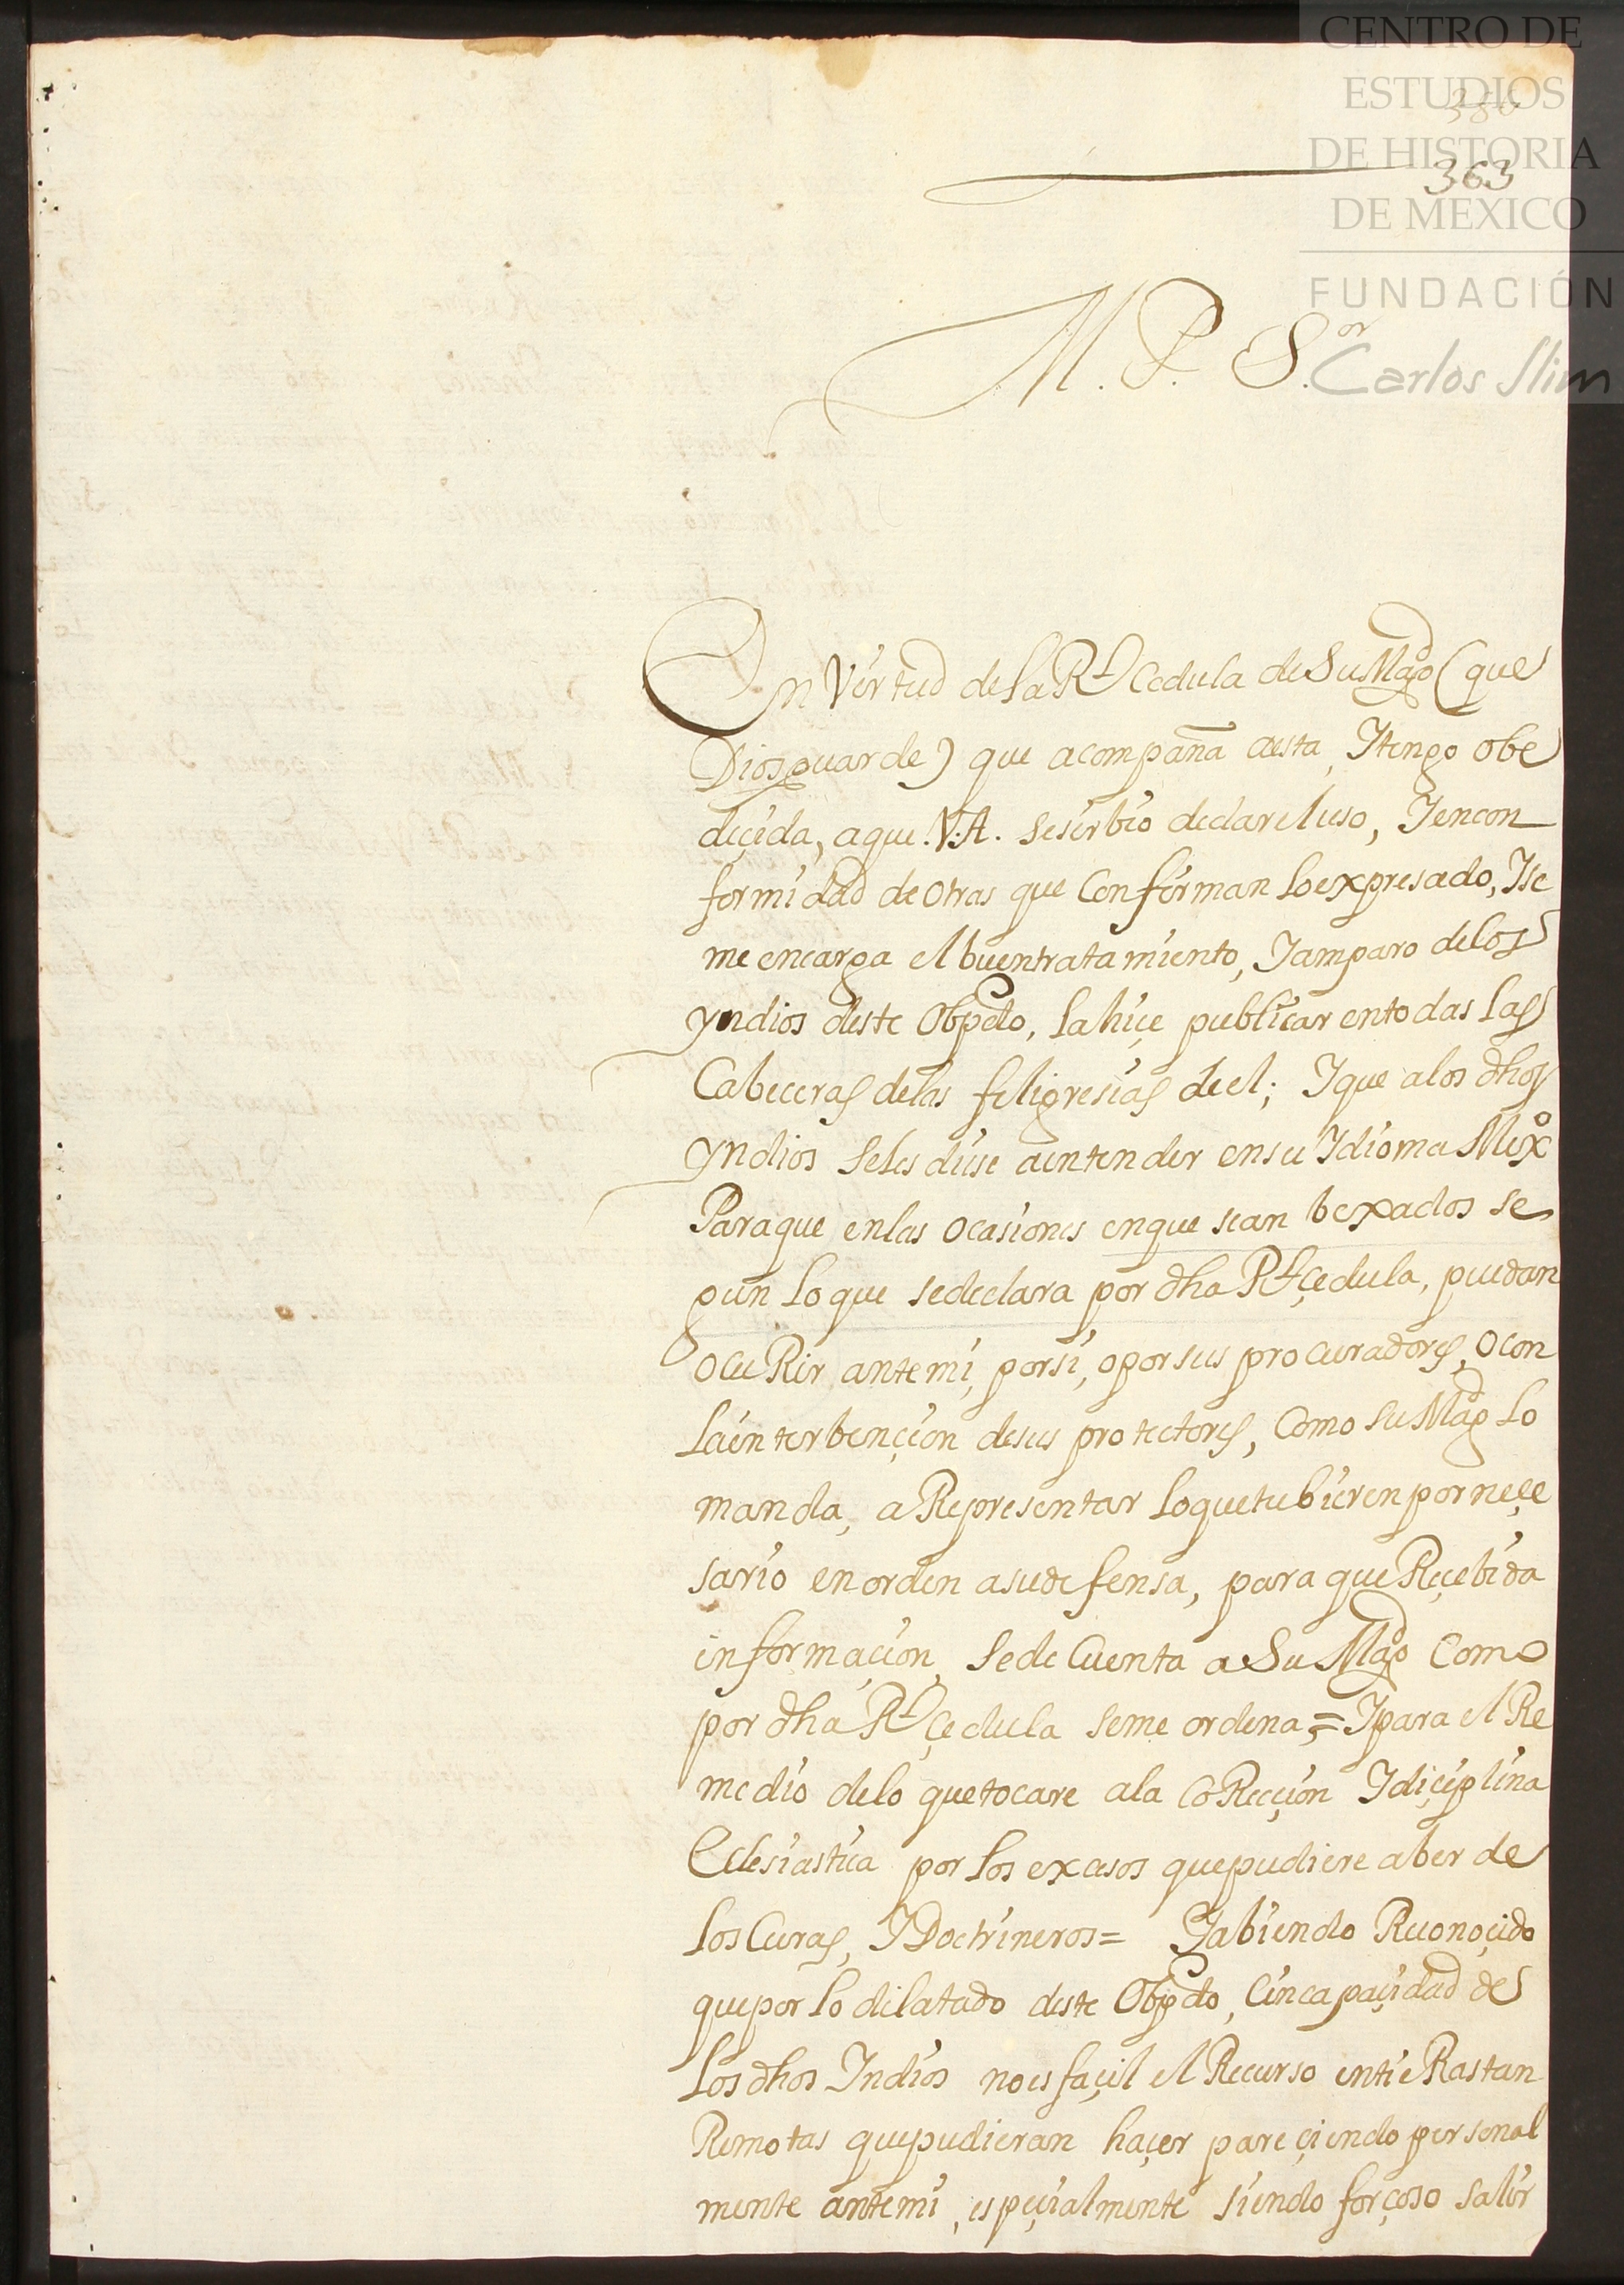 CENTRO DE
ESTUDIOS
DE HISTORIA
DE MEXICO
FUNDACIÓN
Carlos Slim
380
363
M. P. S.or
En Virtud de la Rl Cedula de Su Magd (que
Dios guarde) que acompaña aesta, Itengo obe
deçida, aque. V.A. sesirbio dedar el uso, Jencon
formidad de otras que Confirman lo expresado, Ise
me encarga el buentratamiento, Jamparo delos
yndios deste Obpdo, la hiçe publicar entodas las
Cabeceras delas feligresias deel; Ique alos dhos
yndios seles diese aentender ensu Idioma Mexo
Paraque enlas ocasiones enque sean bexados se
gun lo que sedeclara por dha Rl çedula, puedan
ocuRir antemi, porsi, oporsus procuradores, ocon
la interbençion desus protectores, Como su Magd lo
manda, a Representar loquetubieren por neçe
sario enorden asudefensa, para que Reçebida
informaçion, sede Cuenta a Su Magd Como
por dha Rl çedula seme ordena,= Ipara el Re
medio delo quetocare ala CoRecçion Idiçiplina
Eclesiastica por los excesos quepudiere aber de
los Curas, IDoctrineros= Jabiendo Reconoçido
quepor lo dilatado deste Obpdo, Eincapaçidad de
los dhos Indios noes façil el Recurso entieRas tan
Remotas quepudieran haçer pareçiendo personal
mente antemi, espeçialmente siendo forçoso salir